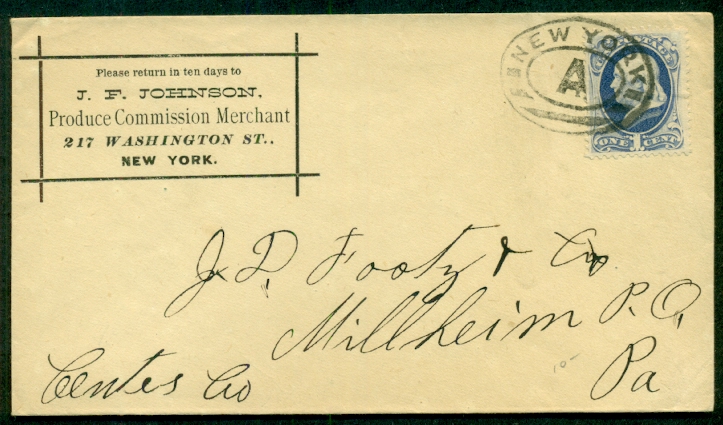 Please return in ten days to
J. F. JOHNSON,
Produce Commission Merchant
217 WASHINGTON ST.,
NEW YORK.
NEW YORK
A
ONE 1 CENT
J. D. Footz & Co
Millheim P. O,
Pa
Centes Co
10-